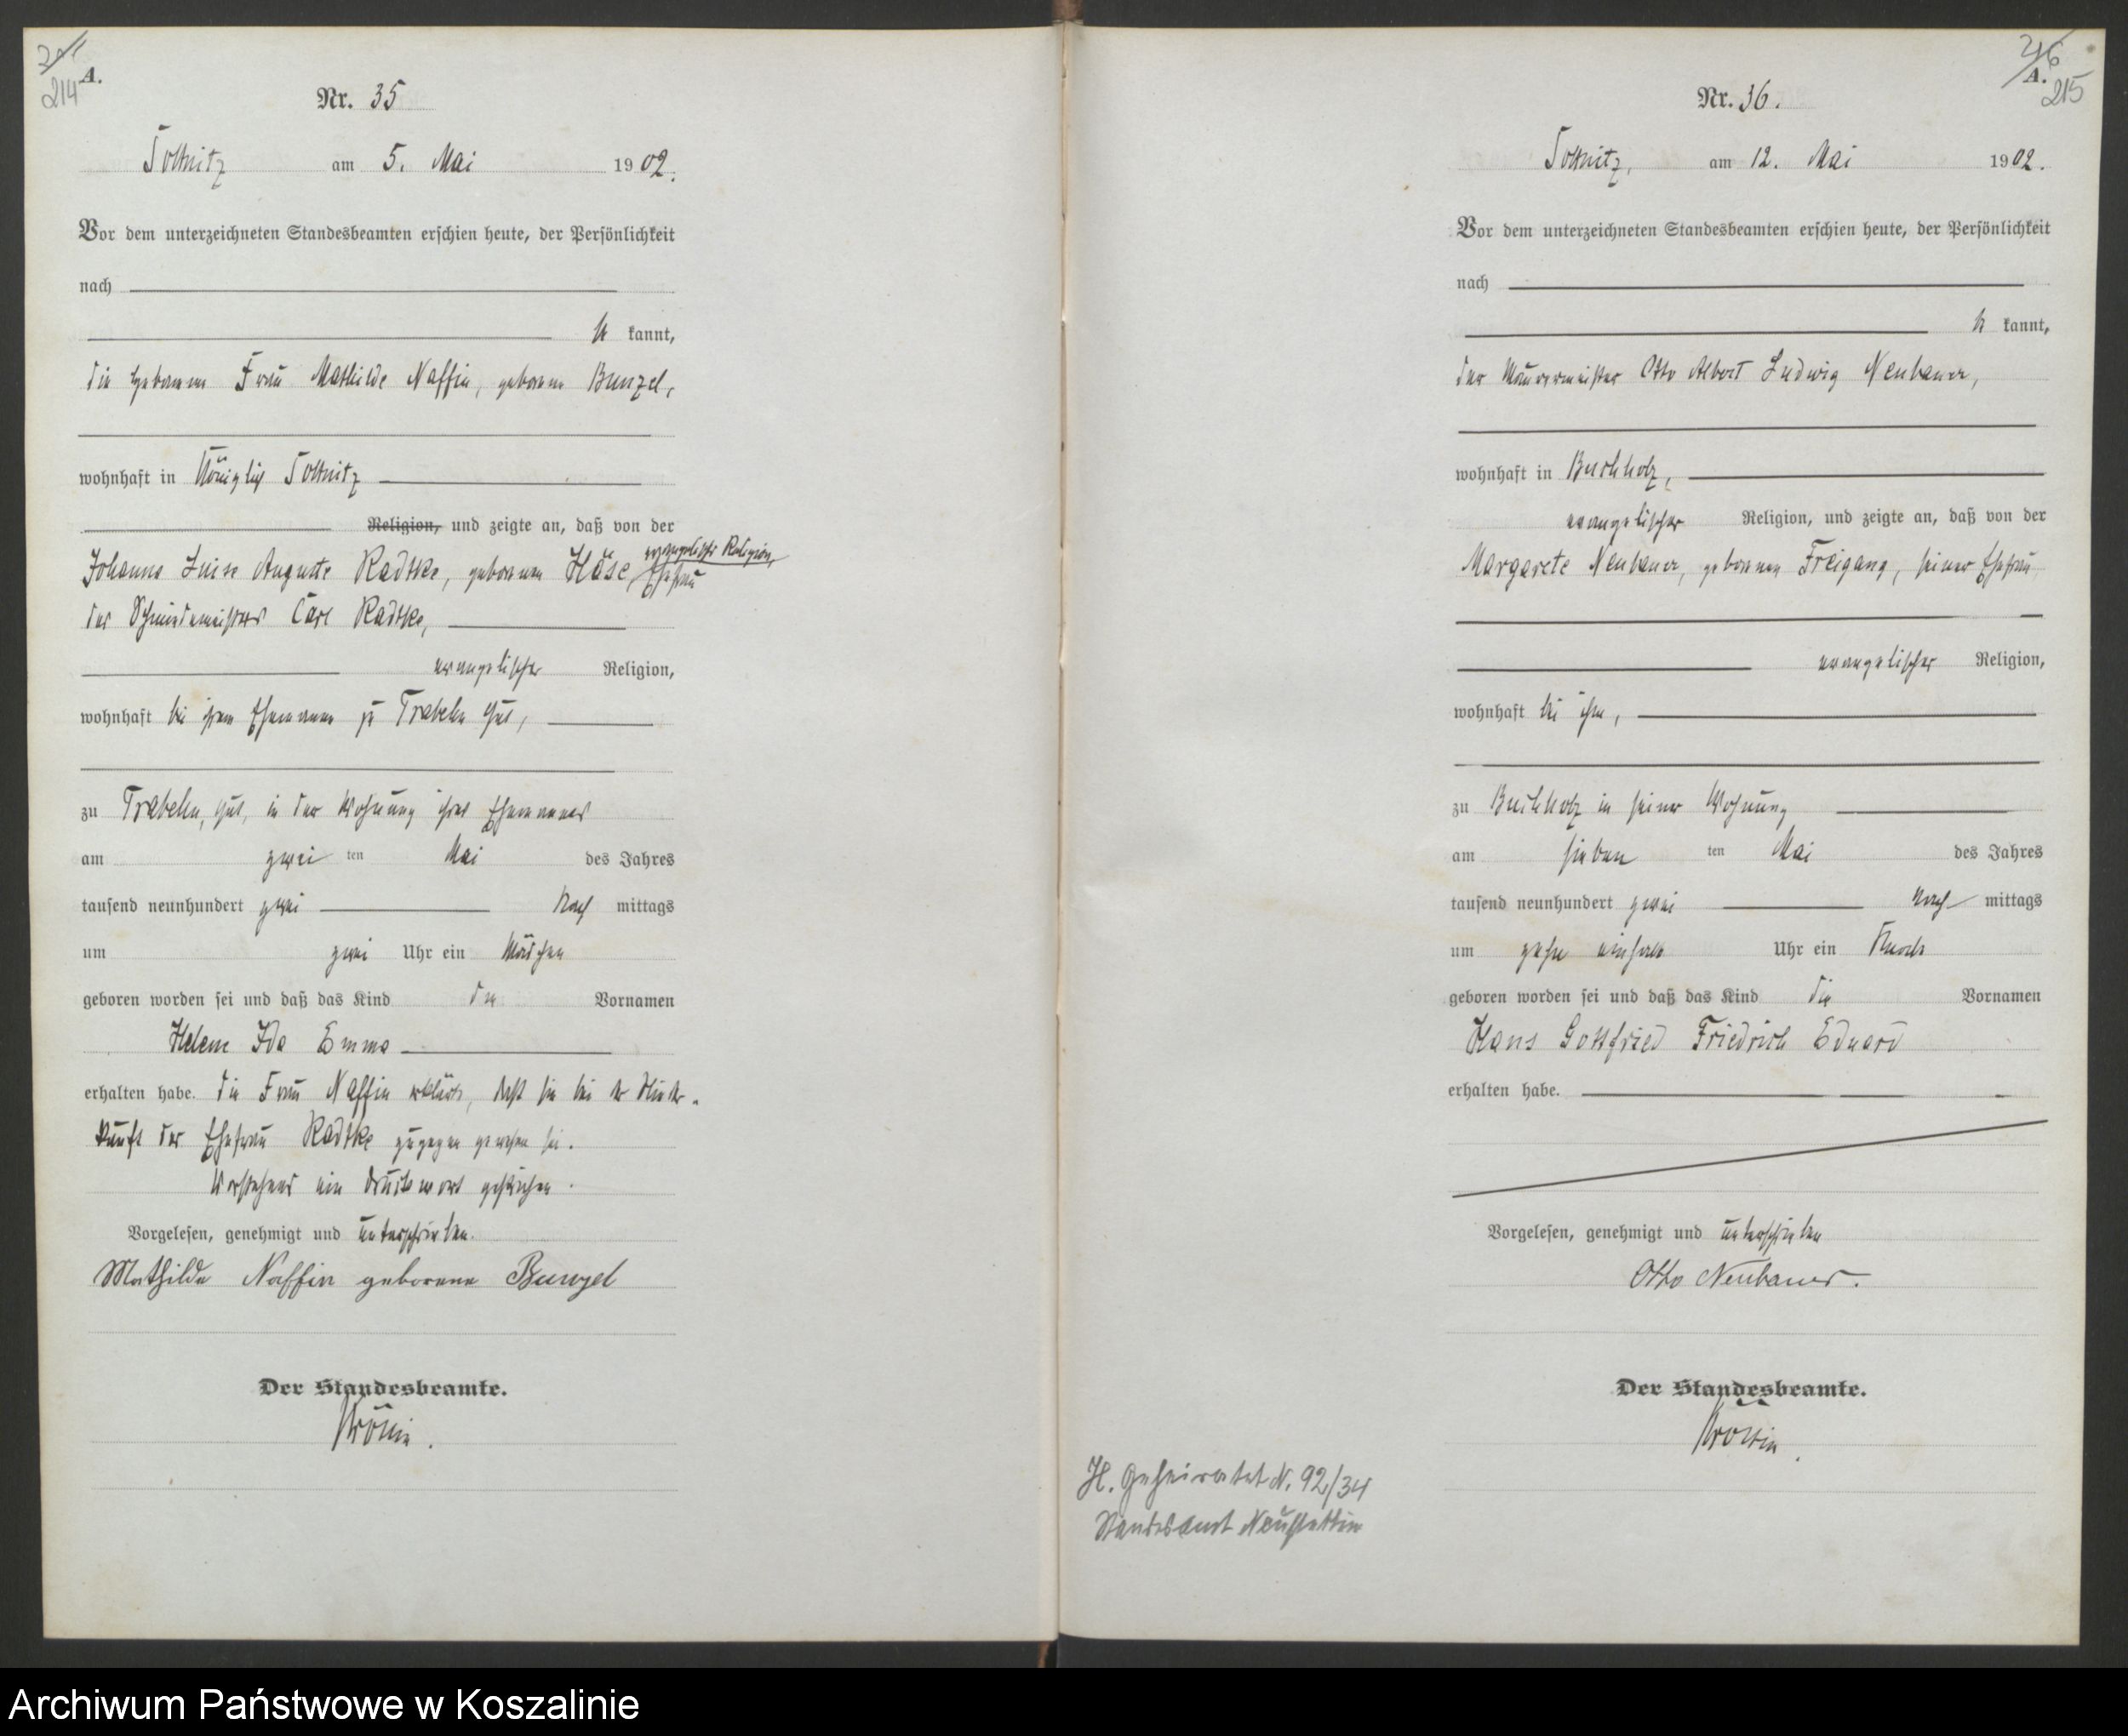 A.
214
Nr. 35
Soltnitz am 5. Mai 1902.
Vor dem unterzeichneten Standesbeamten erschien heute, der Persönlichkeit
nach
be kannt,
die Hebamme Frau Mathilde Naffin, geborene Bunzel,
wohnhaft in Königlich Soltnitz
Religion, und zeigte an, daß von der
Johanna Luise Auguste Radtke, geborenen Häse, evangelischer Religion, Ehefrau
des Schmiedemeisters Carl Radtke,
evangelischer Religion,
wohnhaft bei ihrem Ehemanne zu Trabehn Gut,
zu Trabehn, Gut, in der Wohnung ihres Ehemannes
am zwei ten Mai des Jahres
tausend neunhundert zwei Nach mittags
um zwei Uhr ein Mädchen
geboren worden sei und daß das Kind die Vornamen
Helene Ida Emma
erhalten habe. Die Frau Naffin erklärte, daß sie bei der Nieder-
kunft der Ehefrau Radtke zugegen gewesen sei.
Vorstehend ein Druckwort gestrichen.
Vorgelesen, genehmigt und unterschrieben.
Mathilde Naffin geborene Bunzel
Der Standesbeamte.
216
A.
215
Nr. 36.
Soltnitz, am 12. Mai 1902.
Vor dem unterzeichneten Standesbeamten erschien heute, der Persönlichkeit
nach
be kannt,
der Maurermeister Otto Albert Ludwig Neubauer,
wohnhaft in Buchholz,
evangelischer Religion, und zeigte an, daß von der
Margarete Neubauer, geborenen Freigang, seiner Ehefrau
evangelischer Religion,
wohnhaft bei ihm,
zu Buchholz in seiner Wohnung
am sieben ten Mai des Jahres
tausend neunhundert zwei Nach mittags
um zehn einhalb Uhr ein Knabe
geboren worden sei und daß das Kind die Vornamen
Hans Gottfried Friedrich Eduard
erhalten habe.
Vorgelesen, genehmigt und unterschrieben
Otto Neubauer.
Der Standesbeamte.
H. Geheiratet N. 92/34
Standesamt Neustettin
Archiwum Państwowe w Koszalinie